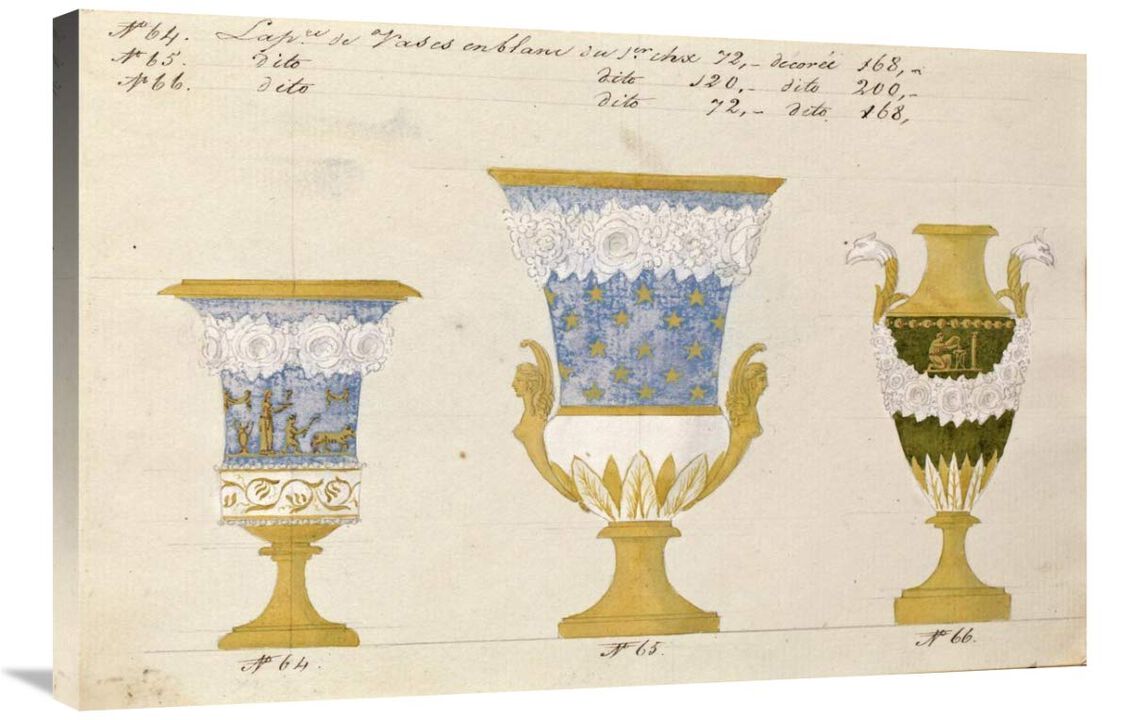 Nº 64. La pre de Vases en blanc du 1er chx 72,- decorée 168,-
Nº 65. dito dito 120,- dito 200,-
Nº 66. dito dito 72,- dito 168,
Nº 64.
Nº 65.
Nº 66.